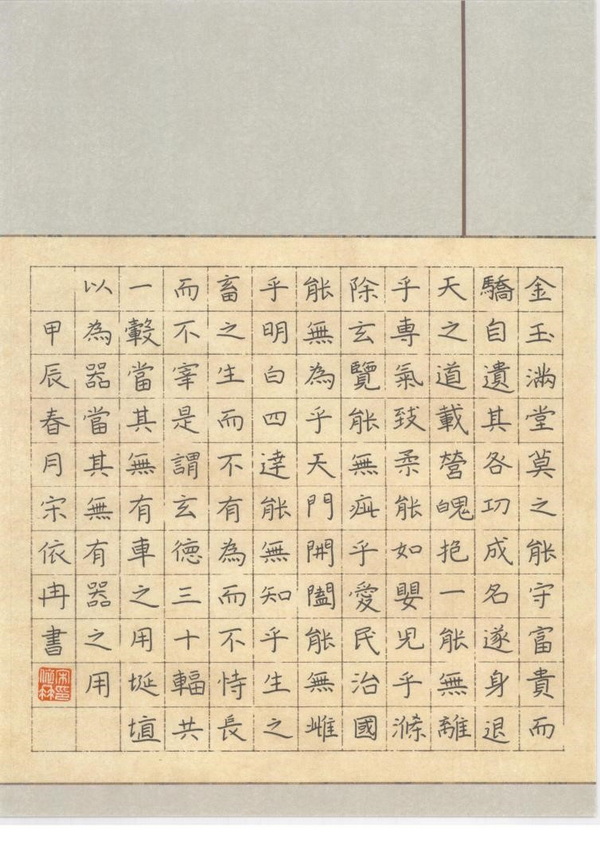 金玉滿堂莫之能守富貴而
驕自遺其各功成名遂身退
天之道載營魄抱一能無離
乎專氣致柔能如嬰兒乎滌
除玄覽能無疵乎愛民治國
能無為乎天門開闔能無雌
乎明白四達能無知乎生之
畜之生而不有為而不恃長
而不宰是謂玄德三十輻共
一轂當其無有車之用埏埴
以為器當其無有器之用
甲辰春月宋依冉書